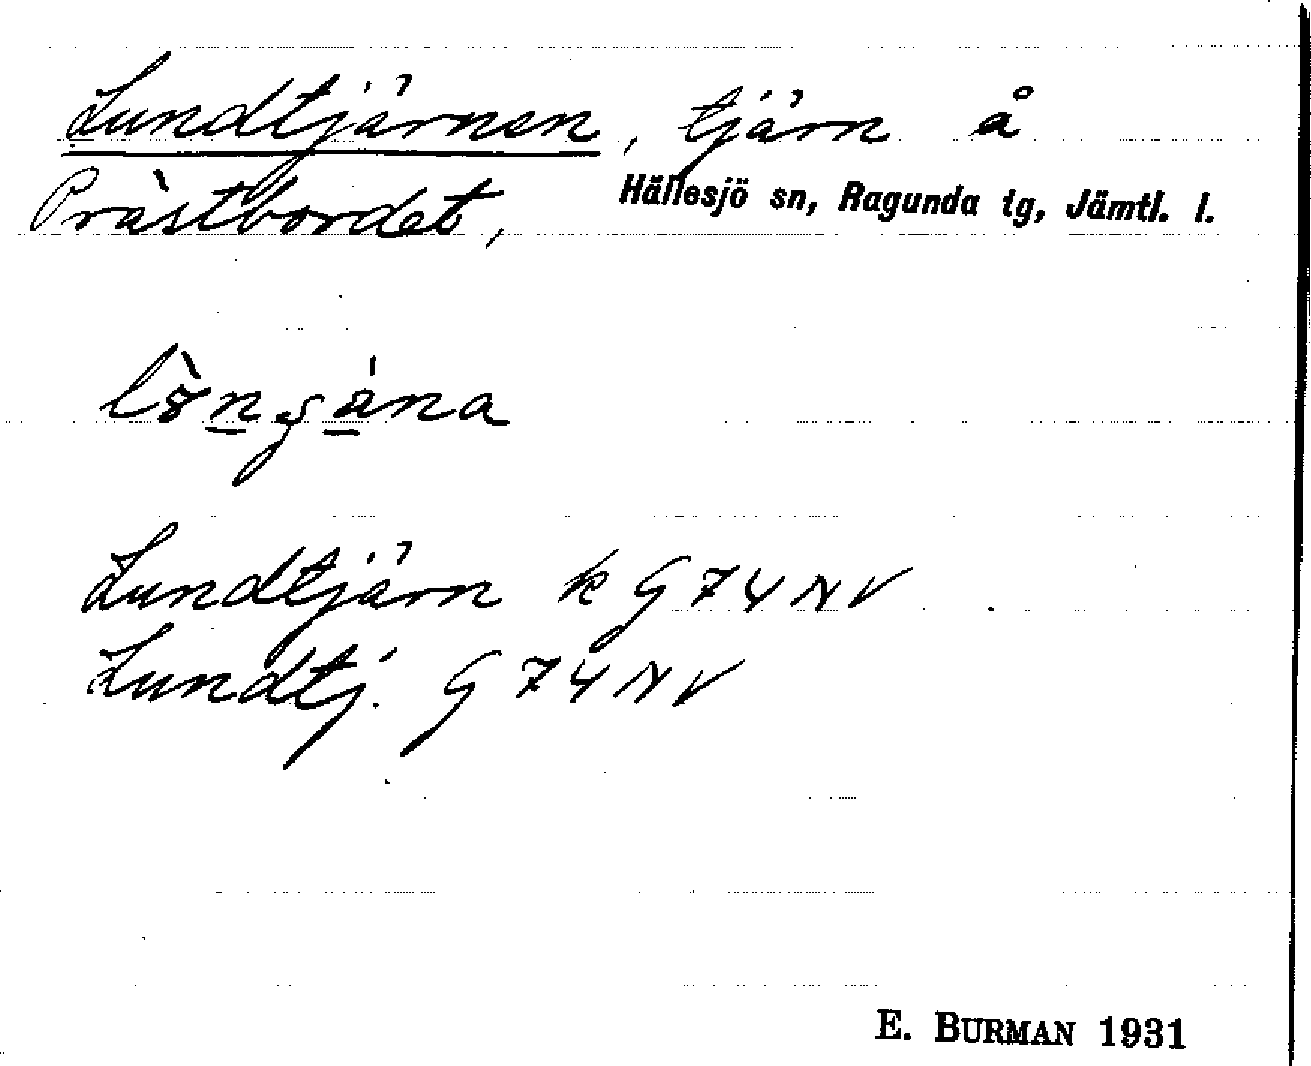 Lundtjärnen, tjärn å
Prästbordet, Hällesjö sn, Ragunda tg, Jämtl. l.
Lundtjärn k G74NV
Lundtj. G74NV
E. BURMAN 1931